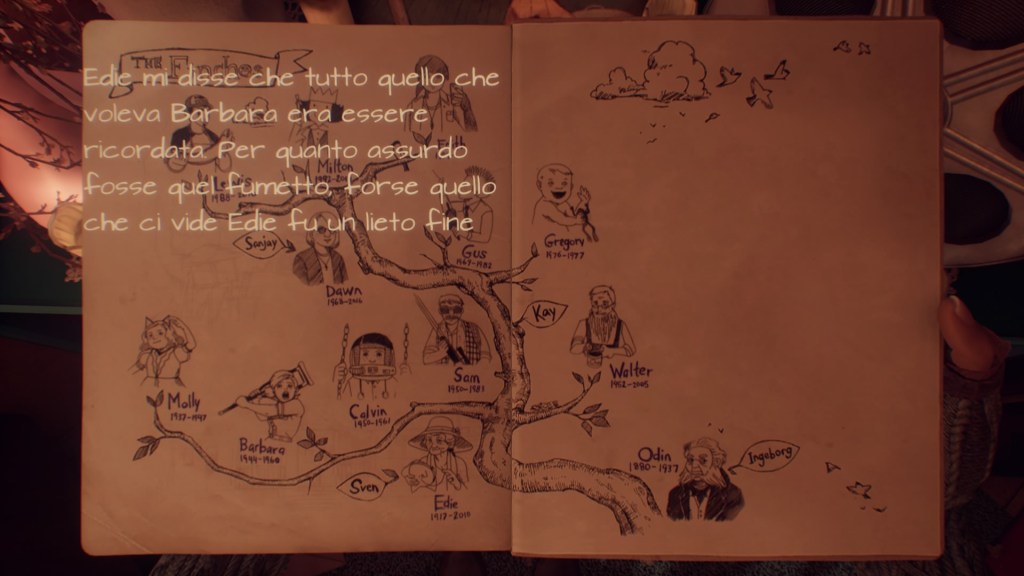 THE Finches
Edie mi disse che tutto quello che
voleva Barbara era essere
ricordata. Per quanto assurdo
fosse quel fumetto, forse quello
che ci vide Edie fu un lieto fine
Milton
Sanjay
Dawn
1968-2016
Gus
1969-1982
Gregory
1976-1977
Kay
Sam
1950-1983
Walter
1952-2005
Molly
1937-1947
Barbara
1944-1960
Calvin
1950-1961
Sven
Edie
Odin
1880-1937
Ingeborg